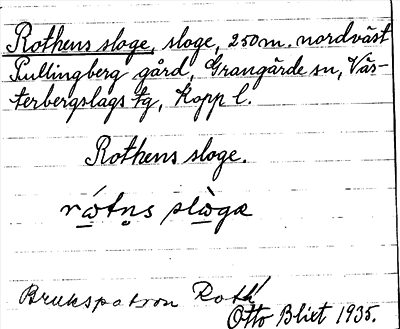 Rothens sloge, sloge, 250 m. nordväst
Pullingberg gård, Grangärde sn, Väs-
terbergslags tg, Kopp l.
Rothens sloge.
rώtn̥s slὼgæ
Brukspatron Roth
Otto Blixt 1935.